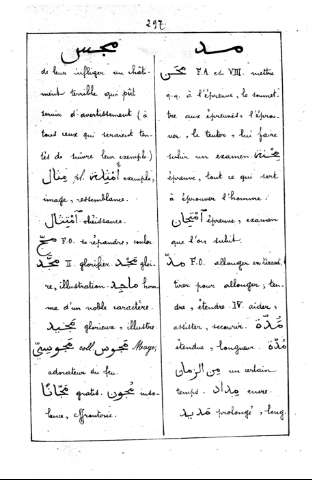 297
مجس
de leur infliger un chât-
ment terrible qui pût
servir d'avertissement (à
tous ceux qui seraient ten-
tés de suivre leur exemple)
مثال pl. أمثلة exemple,
image, ressemblance.
امتثال obéissance.
F.O. se répandre, couler
مجّد II glorifier مجد gloi-
re, illustration. ماجد hom-
me d'un noble caractère.
مجيد glorieux, illustre
مجوس coll مجوسيّ Mage,
adorateur du feu.
مجّانا gratis. مجون inso-
lence, effronterie.
مد
محن F.A. et VIII. mettre
q.q. à l'épreuve, le soumet-
tre aux épreuves, l'éprou-
ver, le tenter, lui faire
subir un examen محنة
épreuve, tout ce qui sert
à éprouver l'homme.
امتحان épreuve, examen
que l'on subit.
مدّ F.O. allonger en tirant,
tirer pour allonger, ten-
dre, étendre IV aider,
assister, secourir. مدّة
étendue, longueur. مدّة
من الزمان un certain
temps. مداد encre.
مديد prolongé, long.